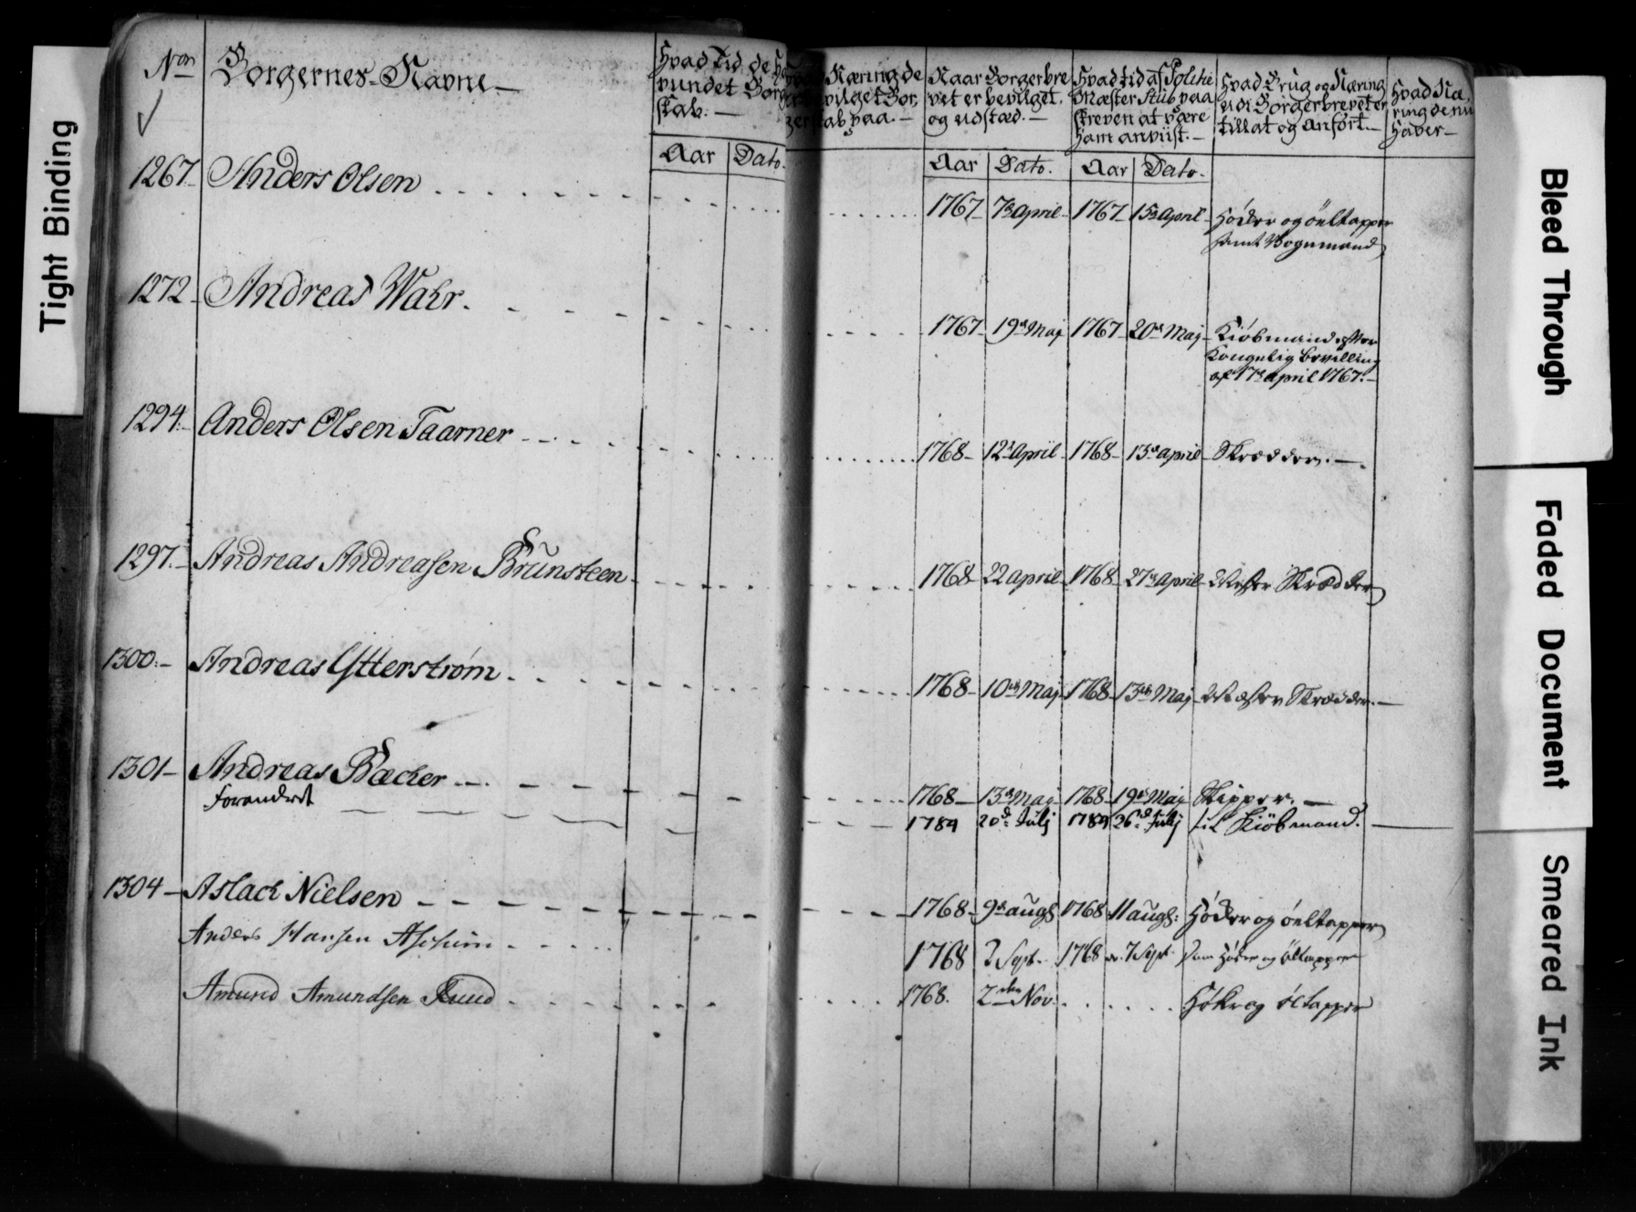 Tight Binding
No
Borgernes Navne
Hvad Tid de ha
vundet Borger
skab.
Aar Dato.
Næring de
vilget Bor
gerskab paa.
Naar Borgerbre
vet er bevilget
og udstæd.
Aar Dato.
Hvad tid af Politie
Mæster Stüb paa
skreven at være
ham anviist.
Aar Dato.
Hvad Brug og Næring
udi Borgerbrevet er
tillat og anført.
Hvad Næ
ring de nu
haver
1267. Anders Olsen 1767 7de April 1767 15de April Höker og öeltapper
samt Vognmand
1272 Andreas Wahr. 1767 19de Maj 1767 20de Maj Kiöbmand efter
Kongelig bevilling
af 17de April 1767.
1294. Anders Olsen Taarner 1768 12te April 1768 13de April Skrædder.
1297. Andreas Andreasen Brunsteen 1768 22 April 1768 27de April Mester Skrædder
1300. Andreas Ytterstrøm 1768 10de Maj 1768 13de Maj Mester Skrædder.
1301 Andreas Bæcker 1768 13de Maj 1768 19de Maj Skipper.
Forandret 1789 20de Julj 1789 26de Julj til Kiöbmand.
1304 Aslach Nielsen 1768 9de augs 1768 11 augs: Höker og öeltapper
Anders Hansen 1768 2 Sept. 1768 7 Sept. Som Höker og öltapper
Amund Amundsen Ruud 1768. 2den Nov. Høker og øltapper
Bleed Through
Faded Document
Smeared Ink